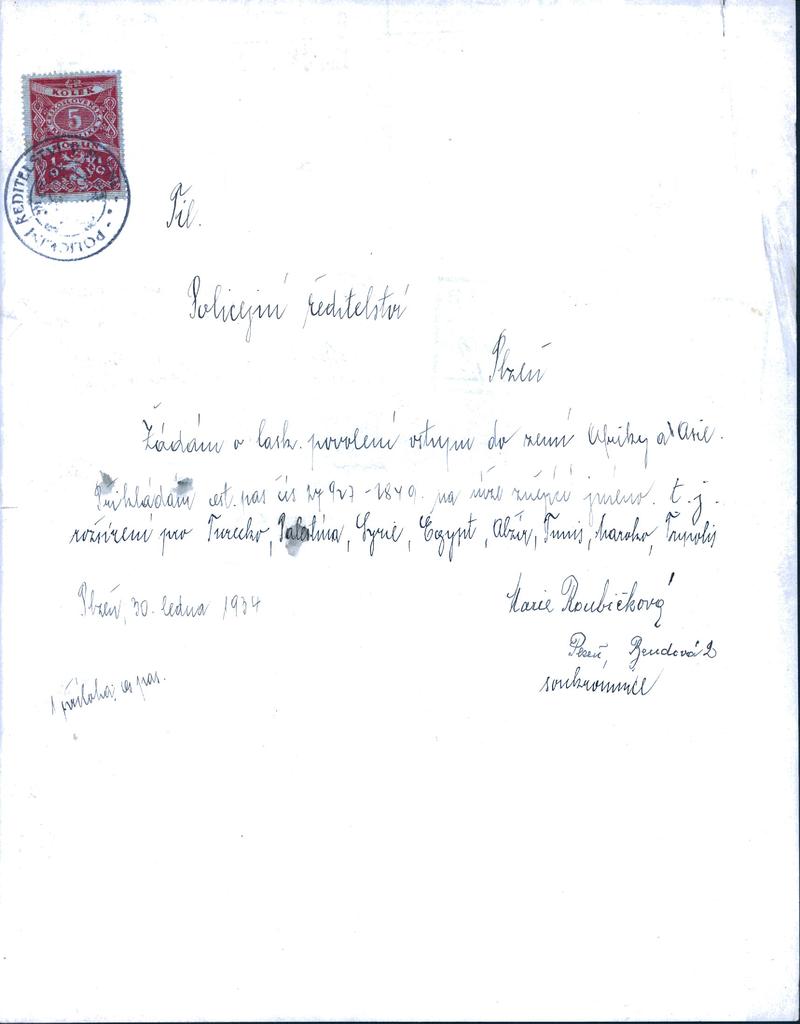 KOLEK
5
POLICEJNÍ ŘEDITELSTVÍ
Tit.
Policejní ředitelství
Plzeň
Žádám o lask. povolení vstupu do zemí Afriky a Asie.
Přikládám cest. pas čís 27927-1849. na níže znějící jméno. t. j.
rozšíření pro Turecko, Palestina, Syrie, Egypt, Alžír, Tunis, Maroko, Tripolis
Plzeň, 30. ledna 1934
Marie Roubíčková
Plzeň, Bendova 2
soukromnice
1 příloha; ces pas.